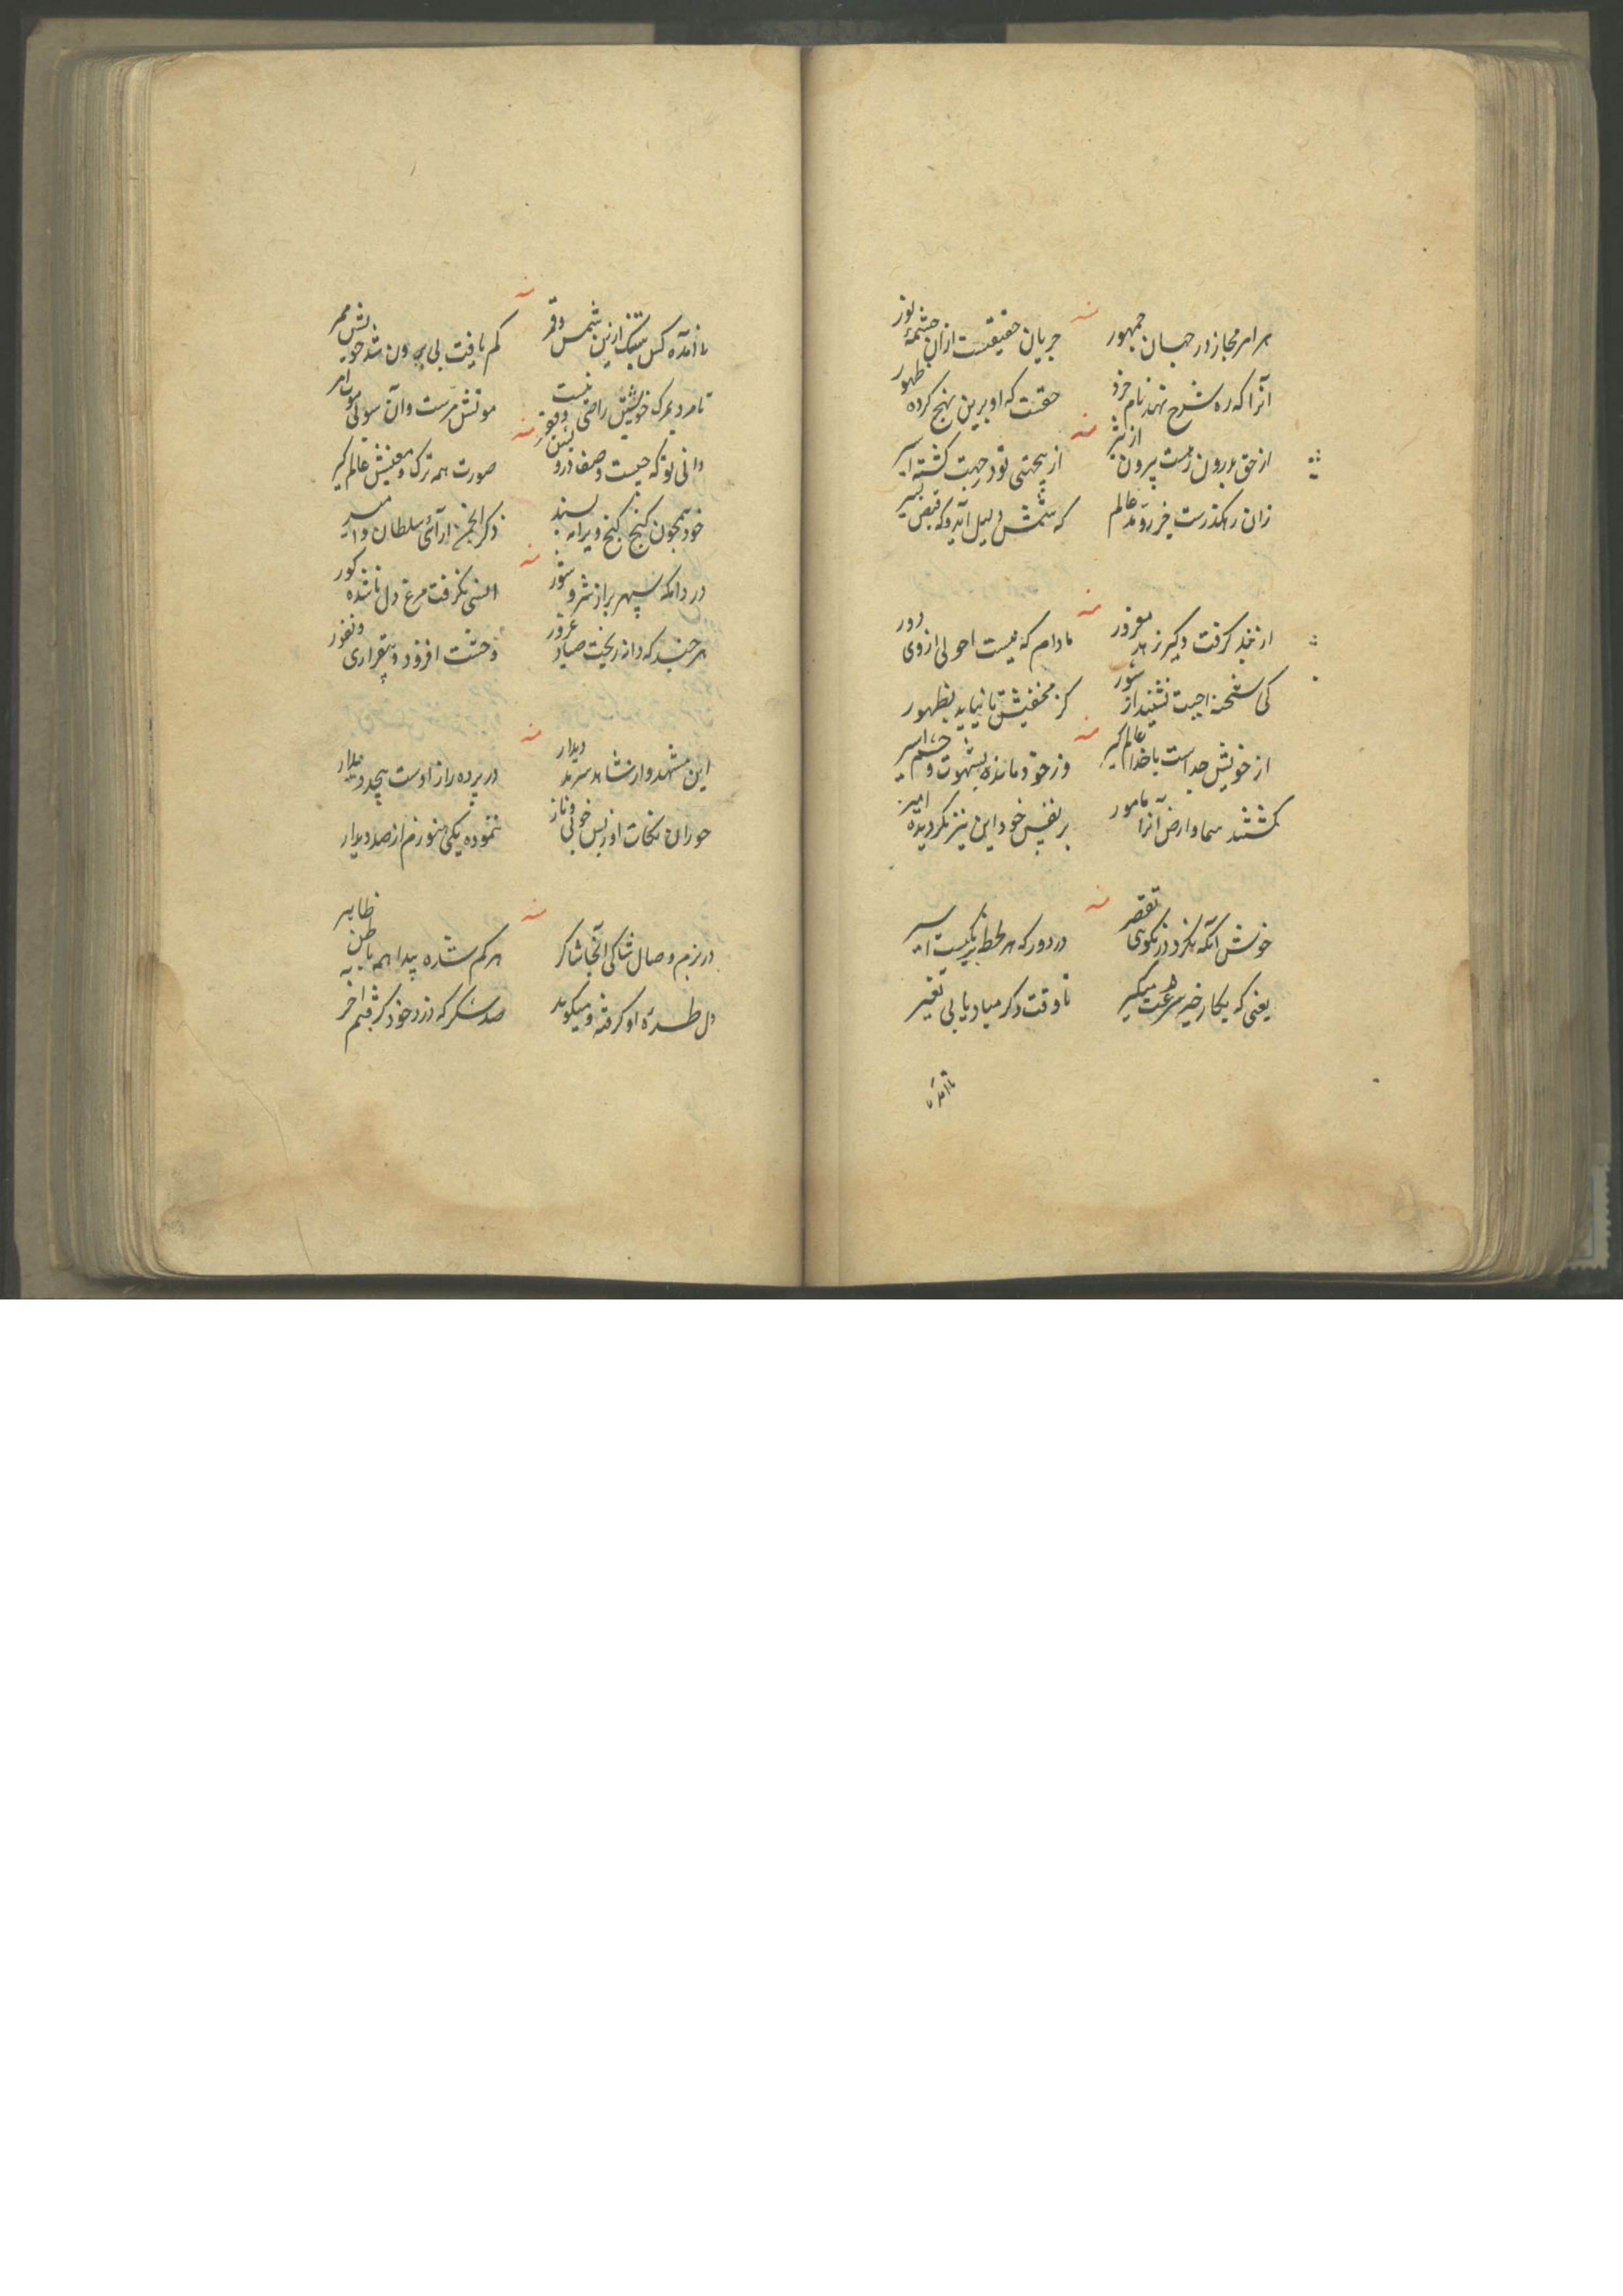 هر امر مجاز در جهان جمهور
جریان حقیقتست ازان چشمهٔ نور
آنرا که ره شرح نهند نام خرد
حقست که او برین نهج کرده ظهور
از حق درون زتست بیرون از شر
از بیجهتی تو در جهت گشته اسیر
زان رهگذرست خیر و عالم
که شمش دلیل آید و که قبض
از کرفت دگیر زهد مغرور
مادام که نیست احولی از وی دور
کی شحنه اجیت نشیند از شور
کز مخفیش تا نیاید بظهور
از خویش جداست با خدا عالم گیر
وز حق و مانده بشهوت و خشم اسیر
گشتند سما و ارض آنرا مامور
بر نفس خود این نیز نکردیده امیر
خوش آنکه نکرد در نکویی تقصیر
در دور که هر لحظه بر نگیست اسیر
یعنی که بکار خیر سرعت میگیر
تا وقت دگر مباد یابی تغییر
نا آمده
نا آمده کس سبک ازین شمس و قمر
کم یافت بی بیرون شد خویش ممر
تا مرد بمرک خویشتن راضی نیست
موتش مرست وآن سوی موت امر
دانی تو که چیست وصف درویش و فقیر
صورت همه ترک و معنیش عالم گیر
خود همچون گنج کنج ویرانه پسند
ذکر انجمن آرائی سلطان و امیر
در دامگه سپهر پر از شر و شور
انسی نگرفت مرغ دل ناشده کور
هر چند که دانه ریخت صیاد غرور
وحشت افزود و بیقراری و نفور
این مشهد وار شاهد سرمد دیدار
در پرده راز اوست بیحد و
حوران نکات او ز بس خوبی و ناز
ننموده یکی هنوزم از صد دیدار
در بزم وصال شاکی آنجا شاکر
هر کم شده پیدا همه باطن ظاهر
دل طره او گرفته و میگوید
صد شکر که دزد خود گرفتم آخر